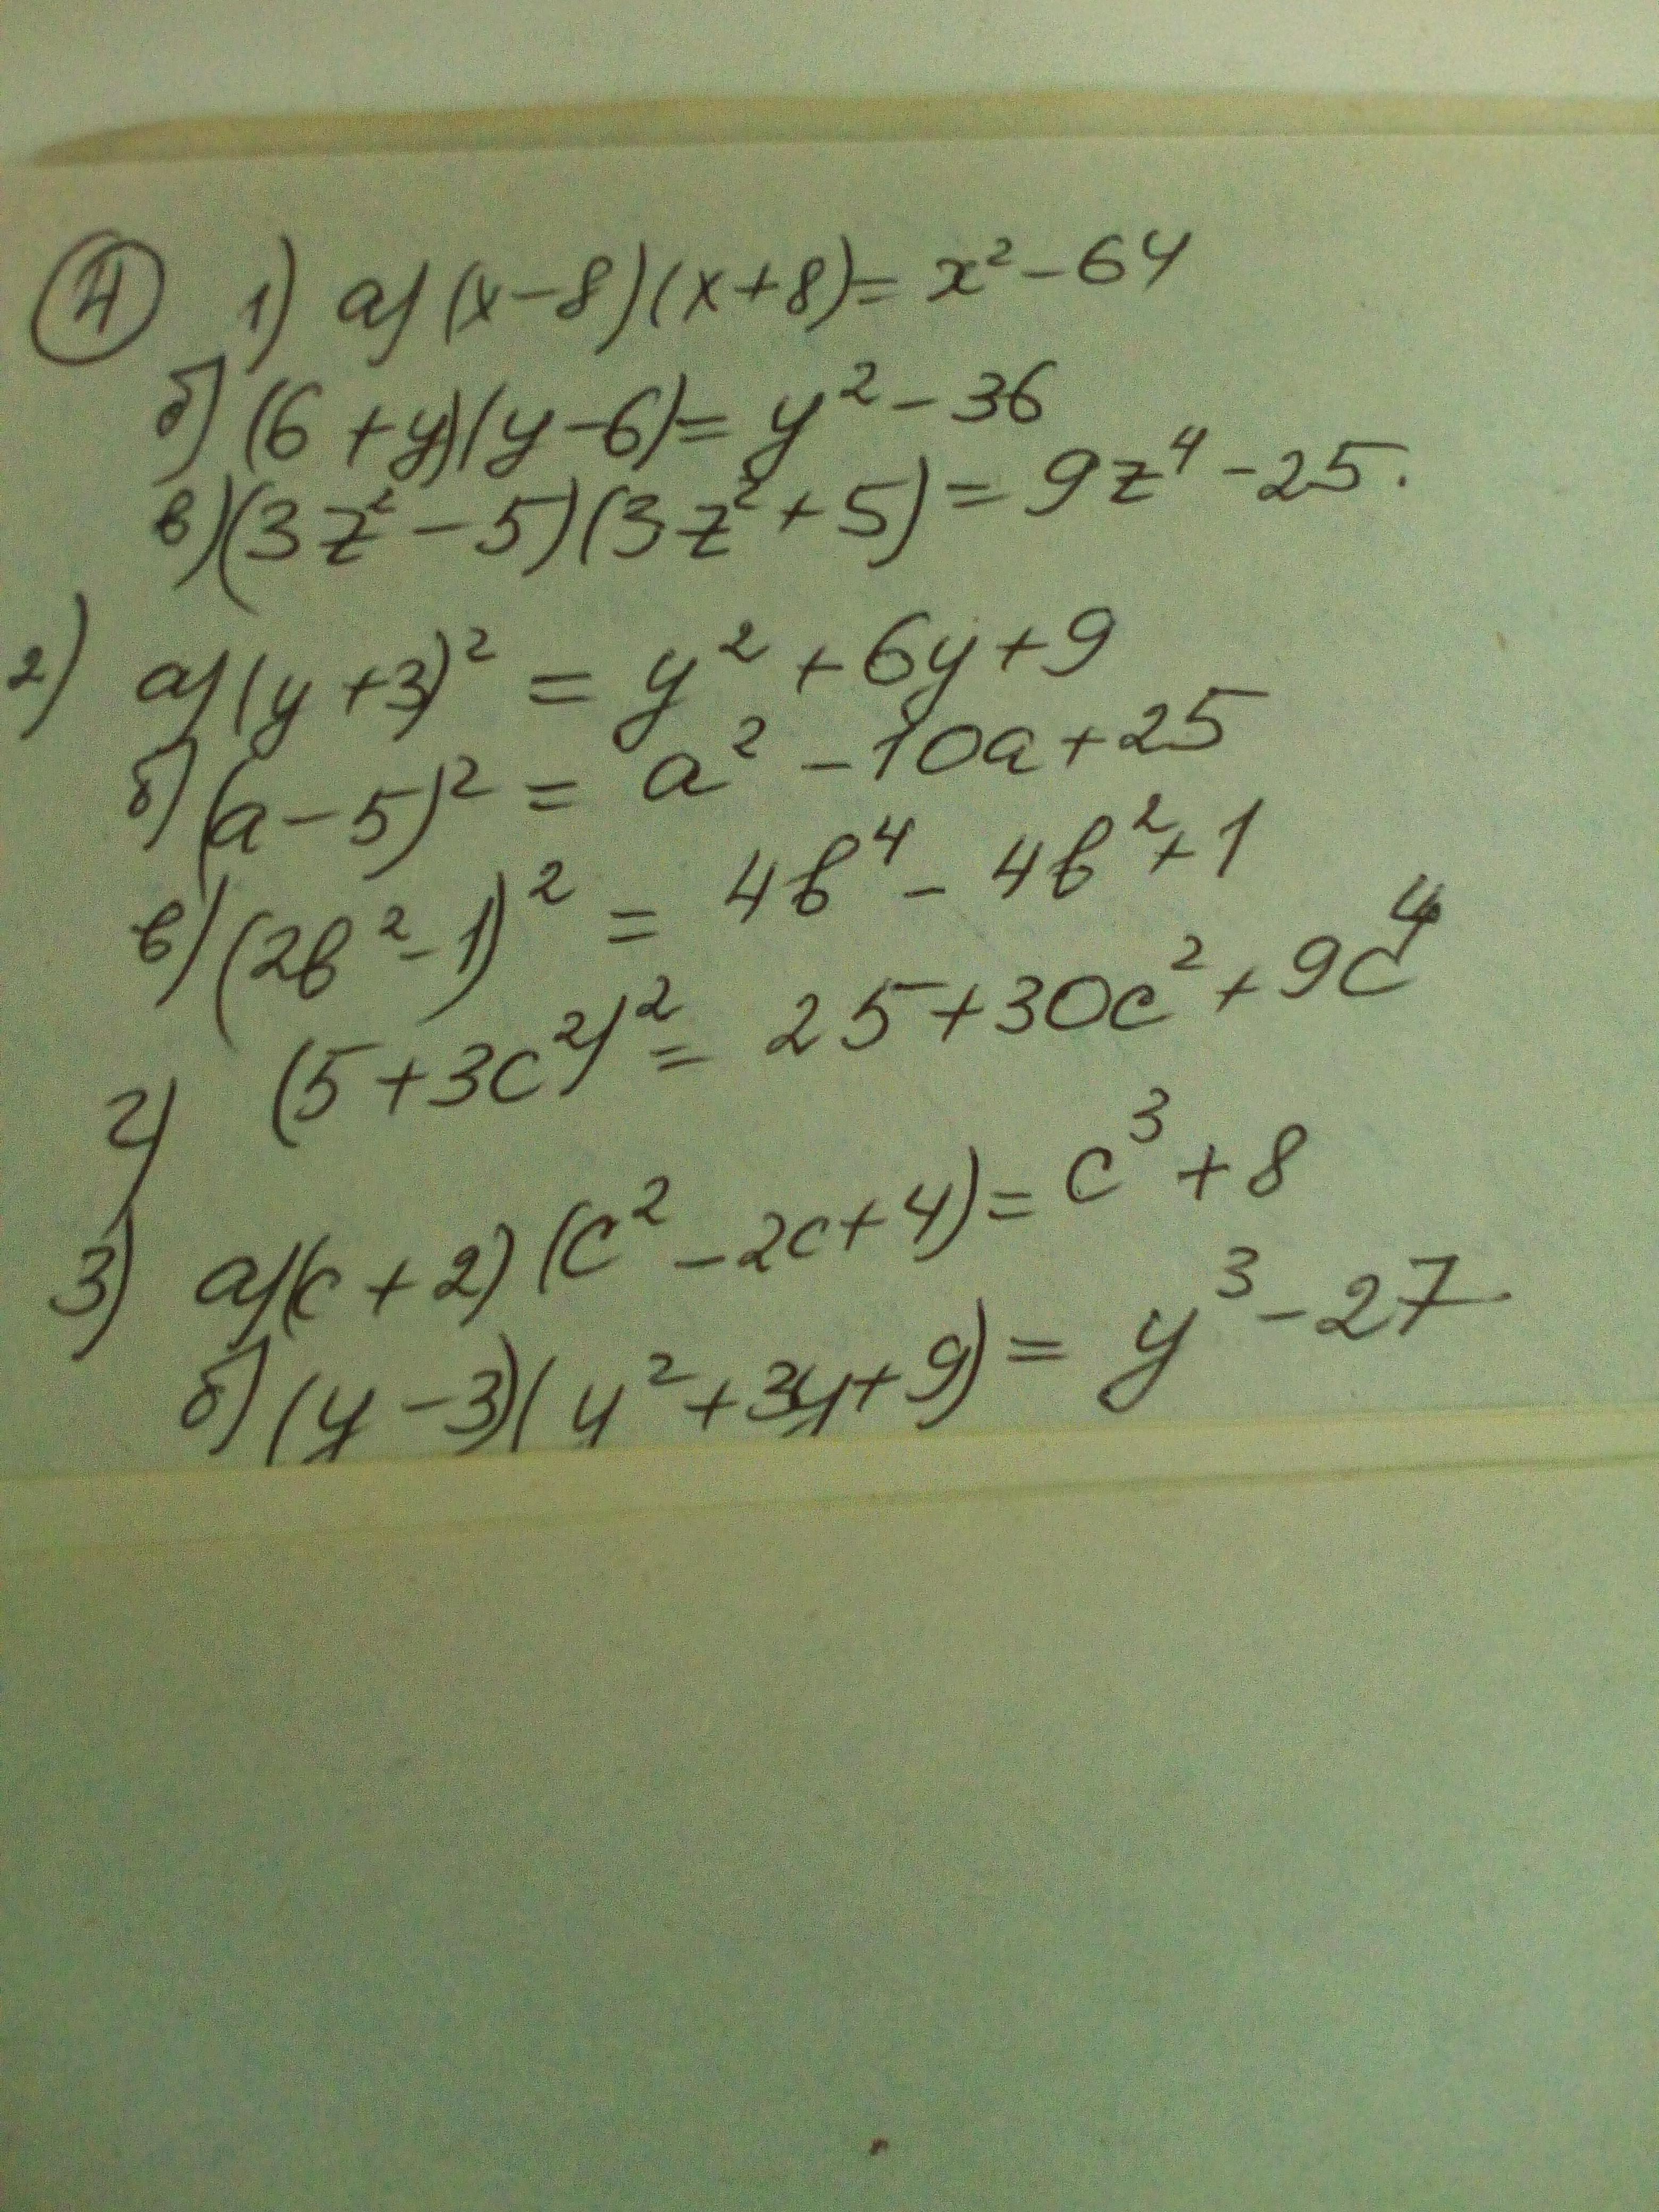 ④ 1) а) (x-8)(x+8)= x²-64
б) (6+y)(y-6)= y²-36
в) (3z²-5)(3z²+5)= 9z⁴-25.
2) а) (y+3)² = y²+6y+9
б) (a-5)² = a²-10a+25
в) (2b²-1)² = 4b⁴-4b²+1
г) (5+3c²)² = 25+30c²+9c⁴
3) а) (c+2)(c²-2c+4)= c³+8
б) (y-3)(y²+3y+9)= y³-27